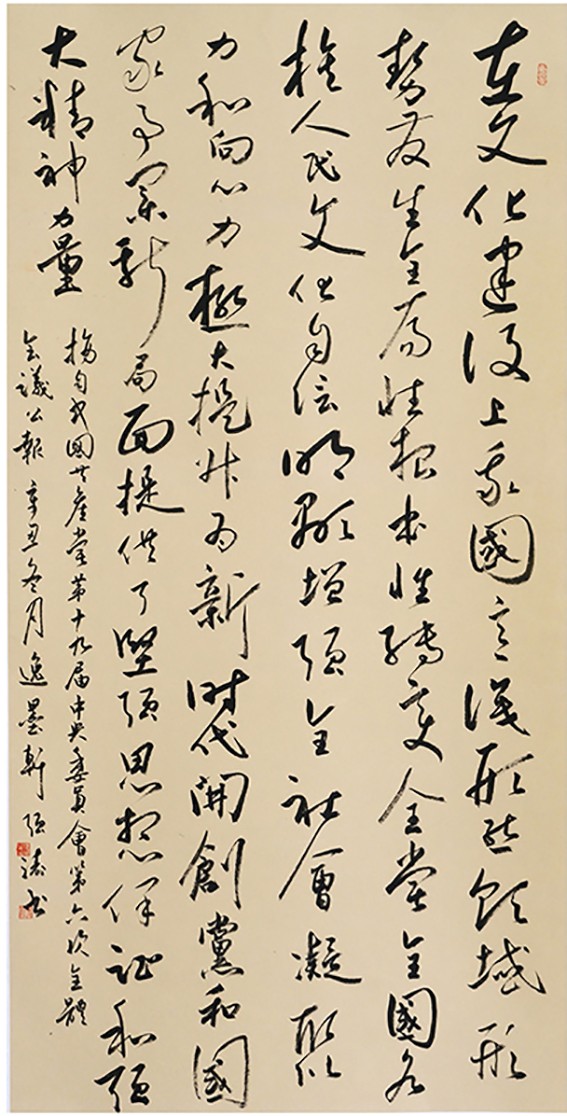 在文化建设上我國意识形态领域形
势发生全局性根本性转变全党全國各
族人民文化自信明显增强全社會凝聚
力和向心力極大提升为新时代開創黨和國
家事業新局面提供了坚强思想保证和强
大精神力量
摘自中國共產党第十九届中央委員會第六次全體
会議公報 辛丑冬月逸墨軒 张涛书